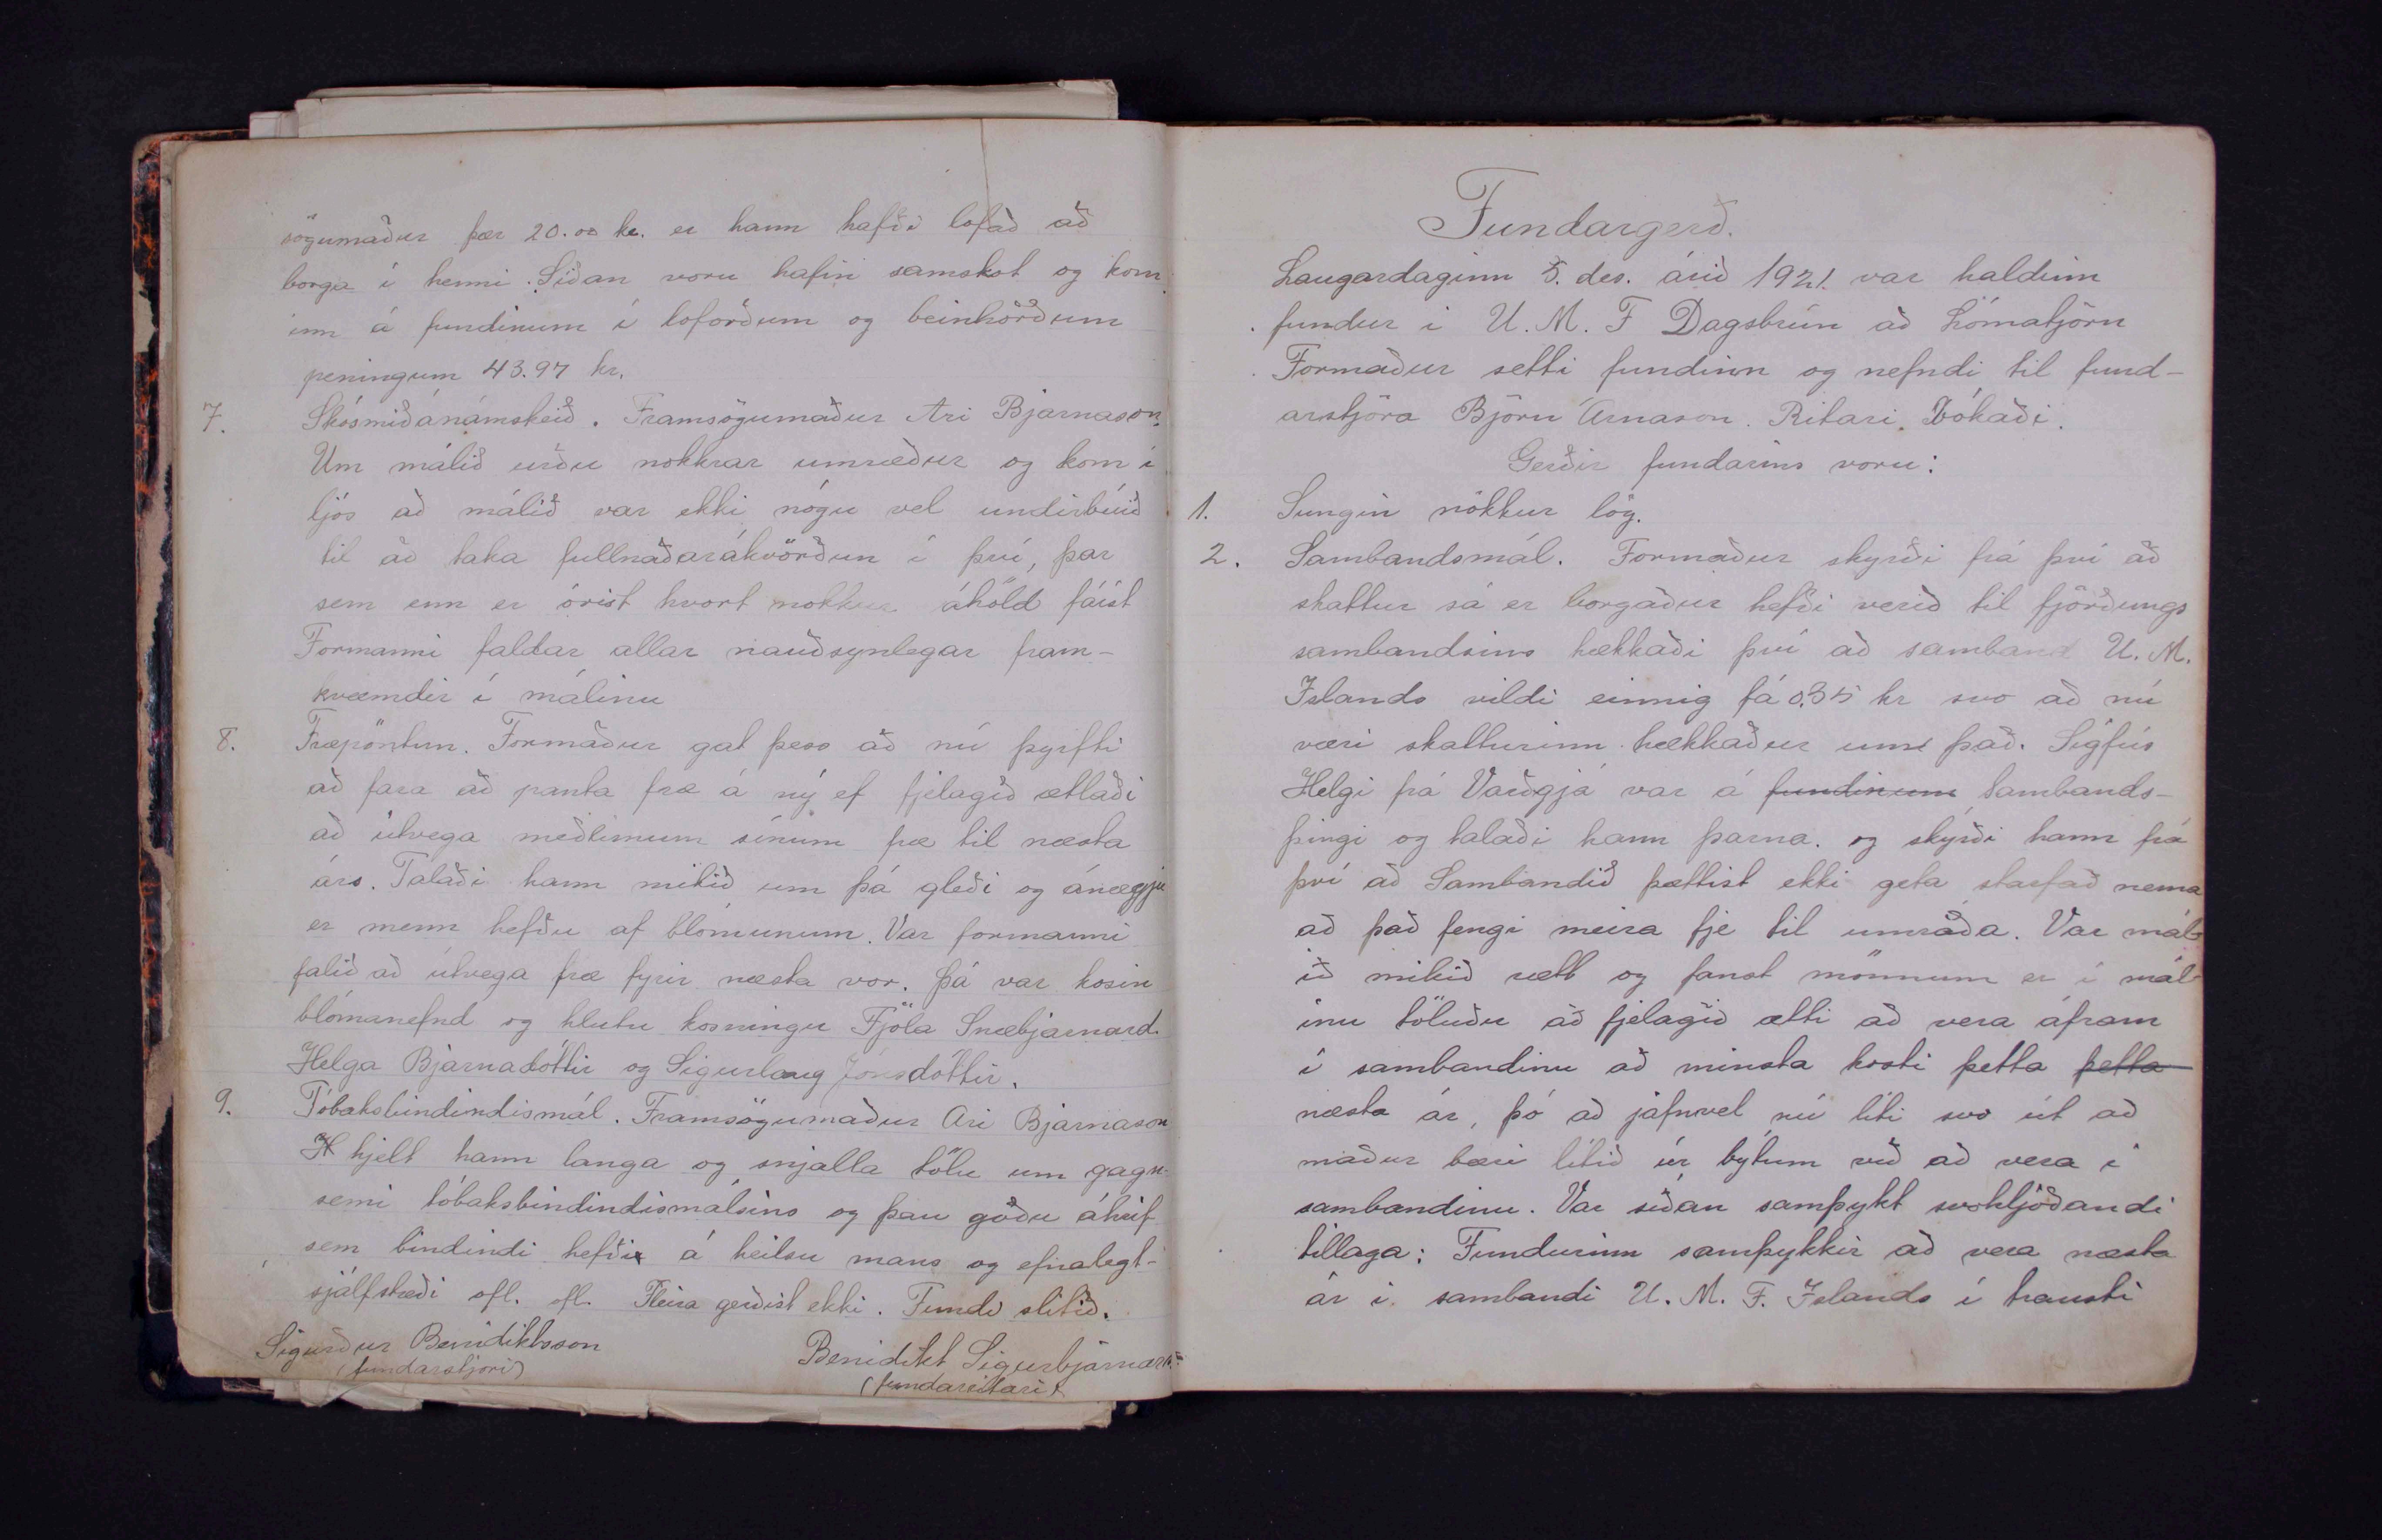 sögumaður þær 20.00 kr. er hann hafði lofað að
borga í henni. Síðan voru hafin samskot og kom
inn á fundinum í loforðum og beinhörðum
peningum 43.97 kr.
7. Skósmiðanámskeið. Framsögumaður Ari Bjarnason.
Um málið urðu nokkrar umræður og kom í
ljós að málið var ekki nógu vel undirbúið
til að taka fullnaðarákvörðun í því, þar
sem enn er óvist hvort nokkur áhöld fáist
Formanni faldar allar nauðsynlegar fram-
kvæmdir í málinu
8. Fræpöntun. Formaður gat þess að nú þyrfti
að fara að panta fræ á ný ef fjelagið ætlaði
að útvega meðlimum sínum fræ til næsta
árs. Talaði hann mikið um þá gleði og ánægju
er menn hefðu af blómunum. Var formanni
falið að útvega fræ fyrir næsta vor. Þá var kosin
blómanefnd og hlutu kosningu Fjóla Snæbjarnard.
Helga Bjarnadóttir og Sigurlaug Jónsdóttir.
9. Tóbaksbindindismál. Framsögumaður Ari Bjarnason
H hjelt hann langa og snjalla tölu um gagn-
semi tóbaksbindindismálsins og þau góðu áhrif
sem bindindi hefði á heilsu mans og efnalegt-
sjálfstæði ofl. ofl. Fleira gerðist ekki. Fundi slitið.
Sigurður Benidiktsson
(fundarstjóri)
Benidikt Sigurbjarnars.
(fundarritari)
Fundargerð.
Laugardaginn 5. des. árið 1921. var haldinn
fundur i U. M. F Dagsbrún að Lómatjörn
Formaður setti fundinn og nefndi til fund-
arstjóra Björn Árnason. Ritari bókaði.
Gerðir fundarins voru:
1. Sungin nokkur lög.
2. Sambandsmál. Formaður skyrði frá því að
skattur sá er borgaður hefði verið til fjórðungs
sambandsins hækkaði því að samband U. M.
Islands vildi einnig fá 0.35 kr svo að nú
væri skatturinn hækkaður um það. Sigfús
Helgi frá Varðgjá var á fundinum Sambands-
þingi og talaði hann þarna. og skýrði hann frá
því að Sambandið þættist ekki geta starfað nema
að það fengi meira fje til umráða. Var mál-
ið mikið rætt og fanst mönnum er í mál-
inu töluðu að fjelagið ætti að vera áfram
í sambandinu að minsta kosti þetta þetta
næsta ár, þó að jafnvel nú liti svo út að
maður bæri lítið úr býtum við að vera í
sambandinu. Var síðan samþykt svohljóðandi
tillaga: Fundurinn samþykkir að vera næsta
ár i sambandi U. M. F. Islands í trausti